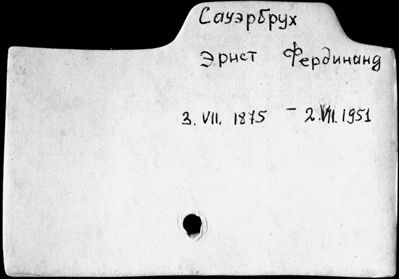 Сауэрбрух
Эрнст Фердинанд
3. VII. 1875 – 2.VII.1951